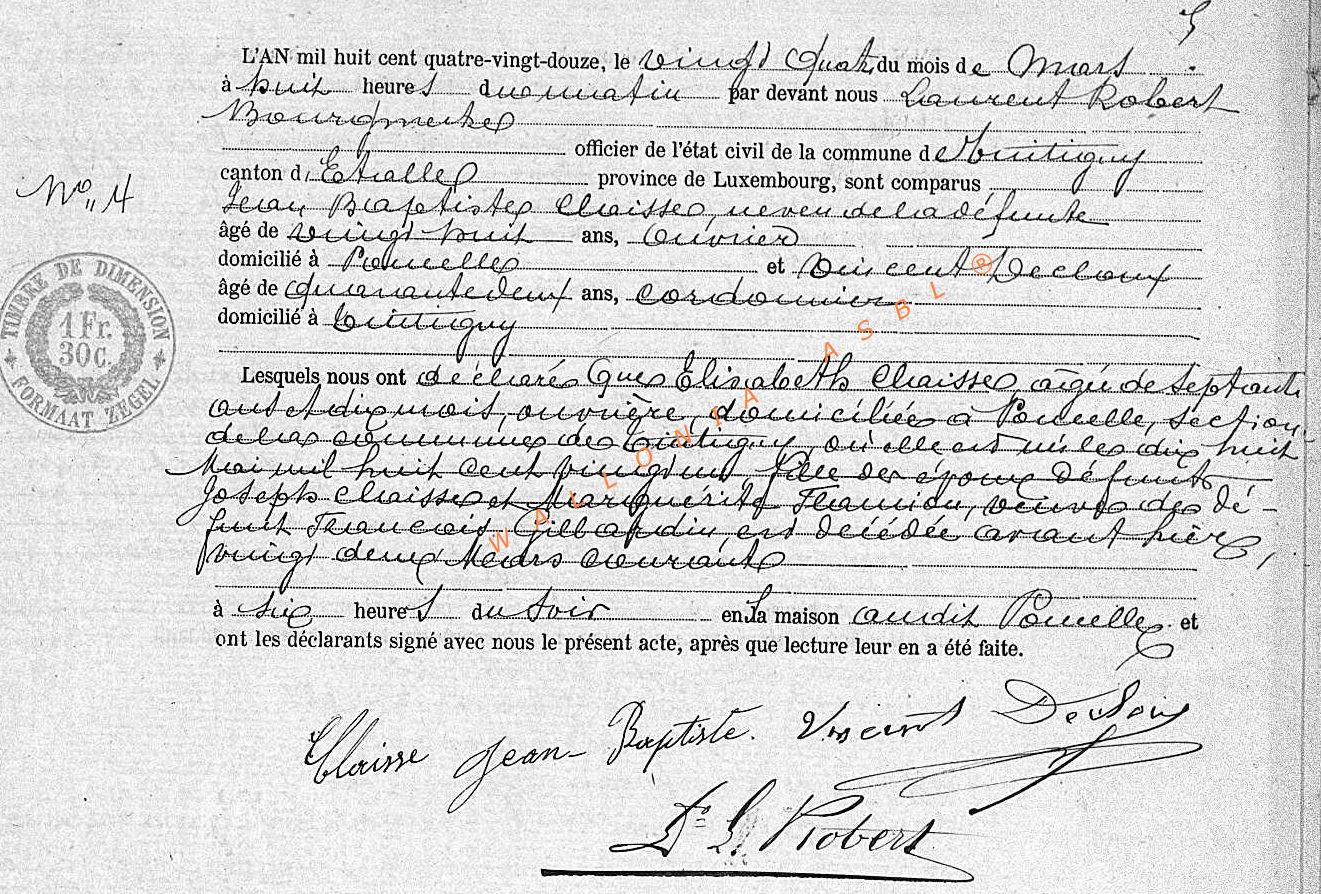 5
L'AN mil huit cent quatre-vingt-douze, le vingt quatre du mois de Mars
à huit heures du matin par devant nous Laurent Robert
Bourgmestre
officier de l'état civil de la commune de Tintigny
canton d'Etalle province de Luxembourg, sont comparus
N° 4
Jean Baptiste Claisse, neveu de la défunte
âgé de vingt huit ans, ouvrier
domicilié à Poncelle et Vincent Decloux
âgé de quarante deux ans, cordonnier
domicilié à Tintigny
Lesquels nous ont déclaré que Elisabeth Claisse, agée de septante
ans et dix mois, ouvrière, domiciliée à Poncelle, section
de la commune de Tintigny, où elle est née le dix huit
Mai mil huit cent vingt un fille des époux défunts
Joseph Claisse et Marguérite Flamion, veuve de dé-
funt Francois Gillardin est décédée avant hier,
vingt deux Mars courant
à six heures du soir en la maison audit Poncelle et
ont les déclarants signé avec nous le présent acte, après que lecture leur en a été faite.
TIMBRE DE DIMENSION
1 Fr.
30c.
FORMAAT ZEGEL
WALLONIA ASBL ®
Claisse Jean-Baptiste. Vincent Decloux
Dr L. Robert